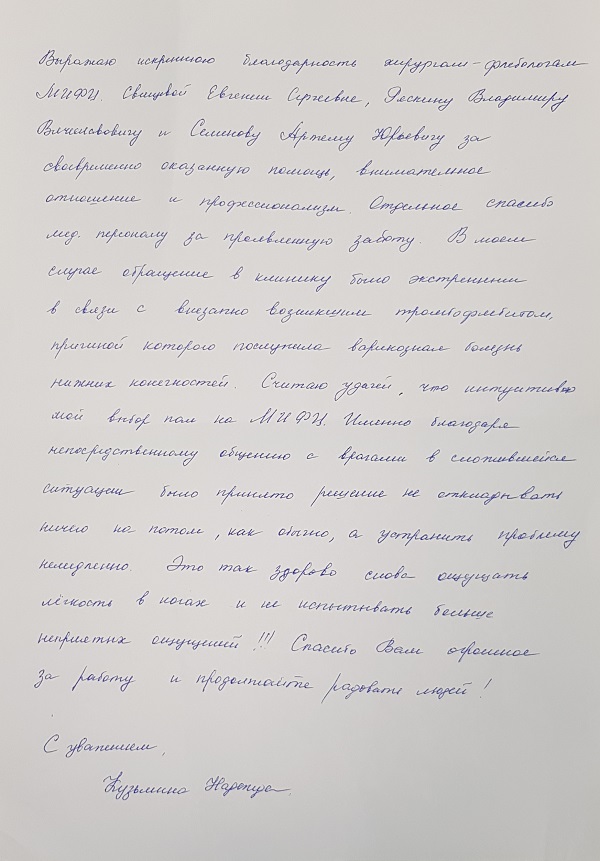 Выражаю искреннюю благодарность хирургам-флебологам
МИФЦ. Свищёвой Евгении Сергеевне, Раскину Владимиру
Вячеславовичу и Семенову Артему Юрьевичу за
своевременно оказанную помощь, внимательное
отношение и профессионализм. Отдельное спасибо
мед. персоналу за проявленную заботу. В моем
случае обращение в клинику было экстренным
в связи с внезапно возникшим тромбофлебитом,
причиной которого послужила варикозная болезнь
нижних конечностей. Считаю удачей, что интуитивно
мой выбор пал на МИФЦ. Именно благодаря
непосредственному общению с врачами в сложившейся
ситуации было принято решение не откладывать
ничего на потом, как обычно, а устранить проблему
немедленно. Это так здорово снова ощущать
лёгкость в ногах и не испытывать больше
неприятных ощущений!!! Спасибо Вам огромное
за работу и продолжайте радовать людей!
С уважением,
Кузьмина